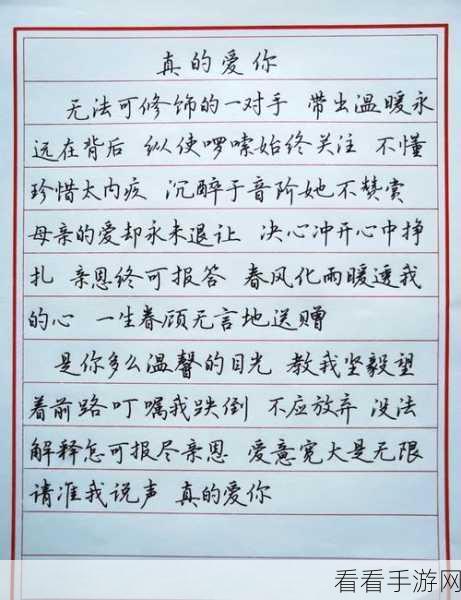 真的爱你
无法可修饰的一对手 带出温暖永
远在背后 纵使啰嗦始终关注 不懂
珍惜太内疚 沉醉于音阶她不赞赏
母亲的爱却永未退让 决心冲开心中挣
扎 亲恩终可报答 春风化雨暖透我
的心 一生眷顾无言地送赠
是你多么温馨的目光 教我坚毅望
着前路叮嘱我跌倒 不应放弃 没法
解释怎可报尽亲恩 爱意宽大是无限
请准我说声 真的爱你
看看手游网